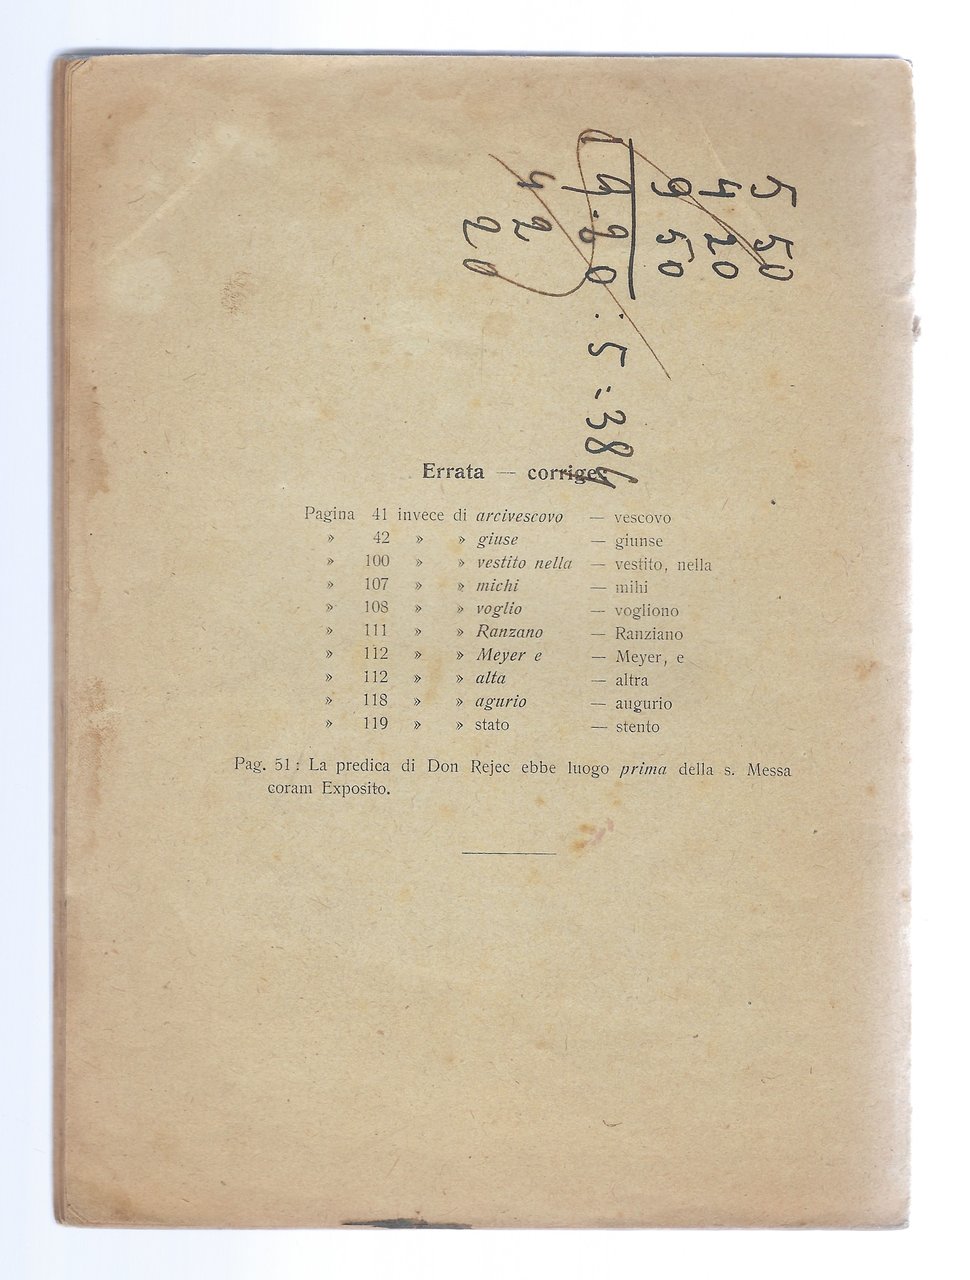 5 50
4 20
9 50
19.20 : 5 = 384
4 2
20
Errata — corrige:
Pagina 41 invece di arcivescovo — vescovo
» 42 » » giuse — giunse
» 100 » » vestito nella — vestito, nella
» 107 » » michi — mihi
» 108 » » voglio — vogliono
» 111 » » Ranzano — Ranziano
» 112 » » Meyer e — Meyer, e
» 112 » » alta — altra
» 118 » » agurio — augurio
» 119 » » stato — stento
Pag. 51 : La predica di Don Rejec ebbe luogo prima della s. Messa
coram Exposito.